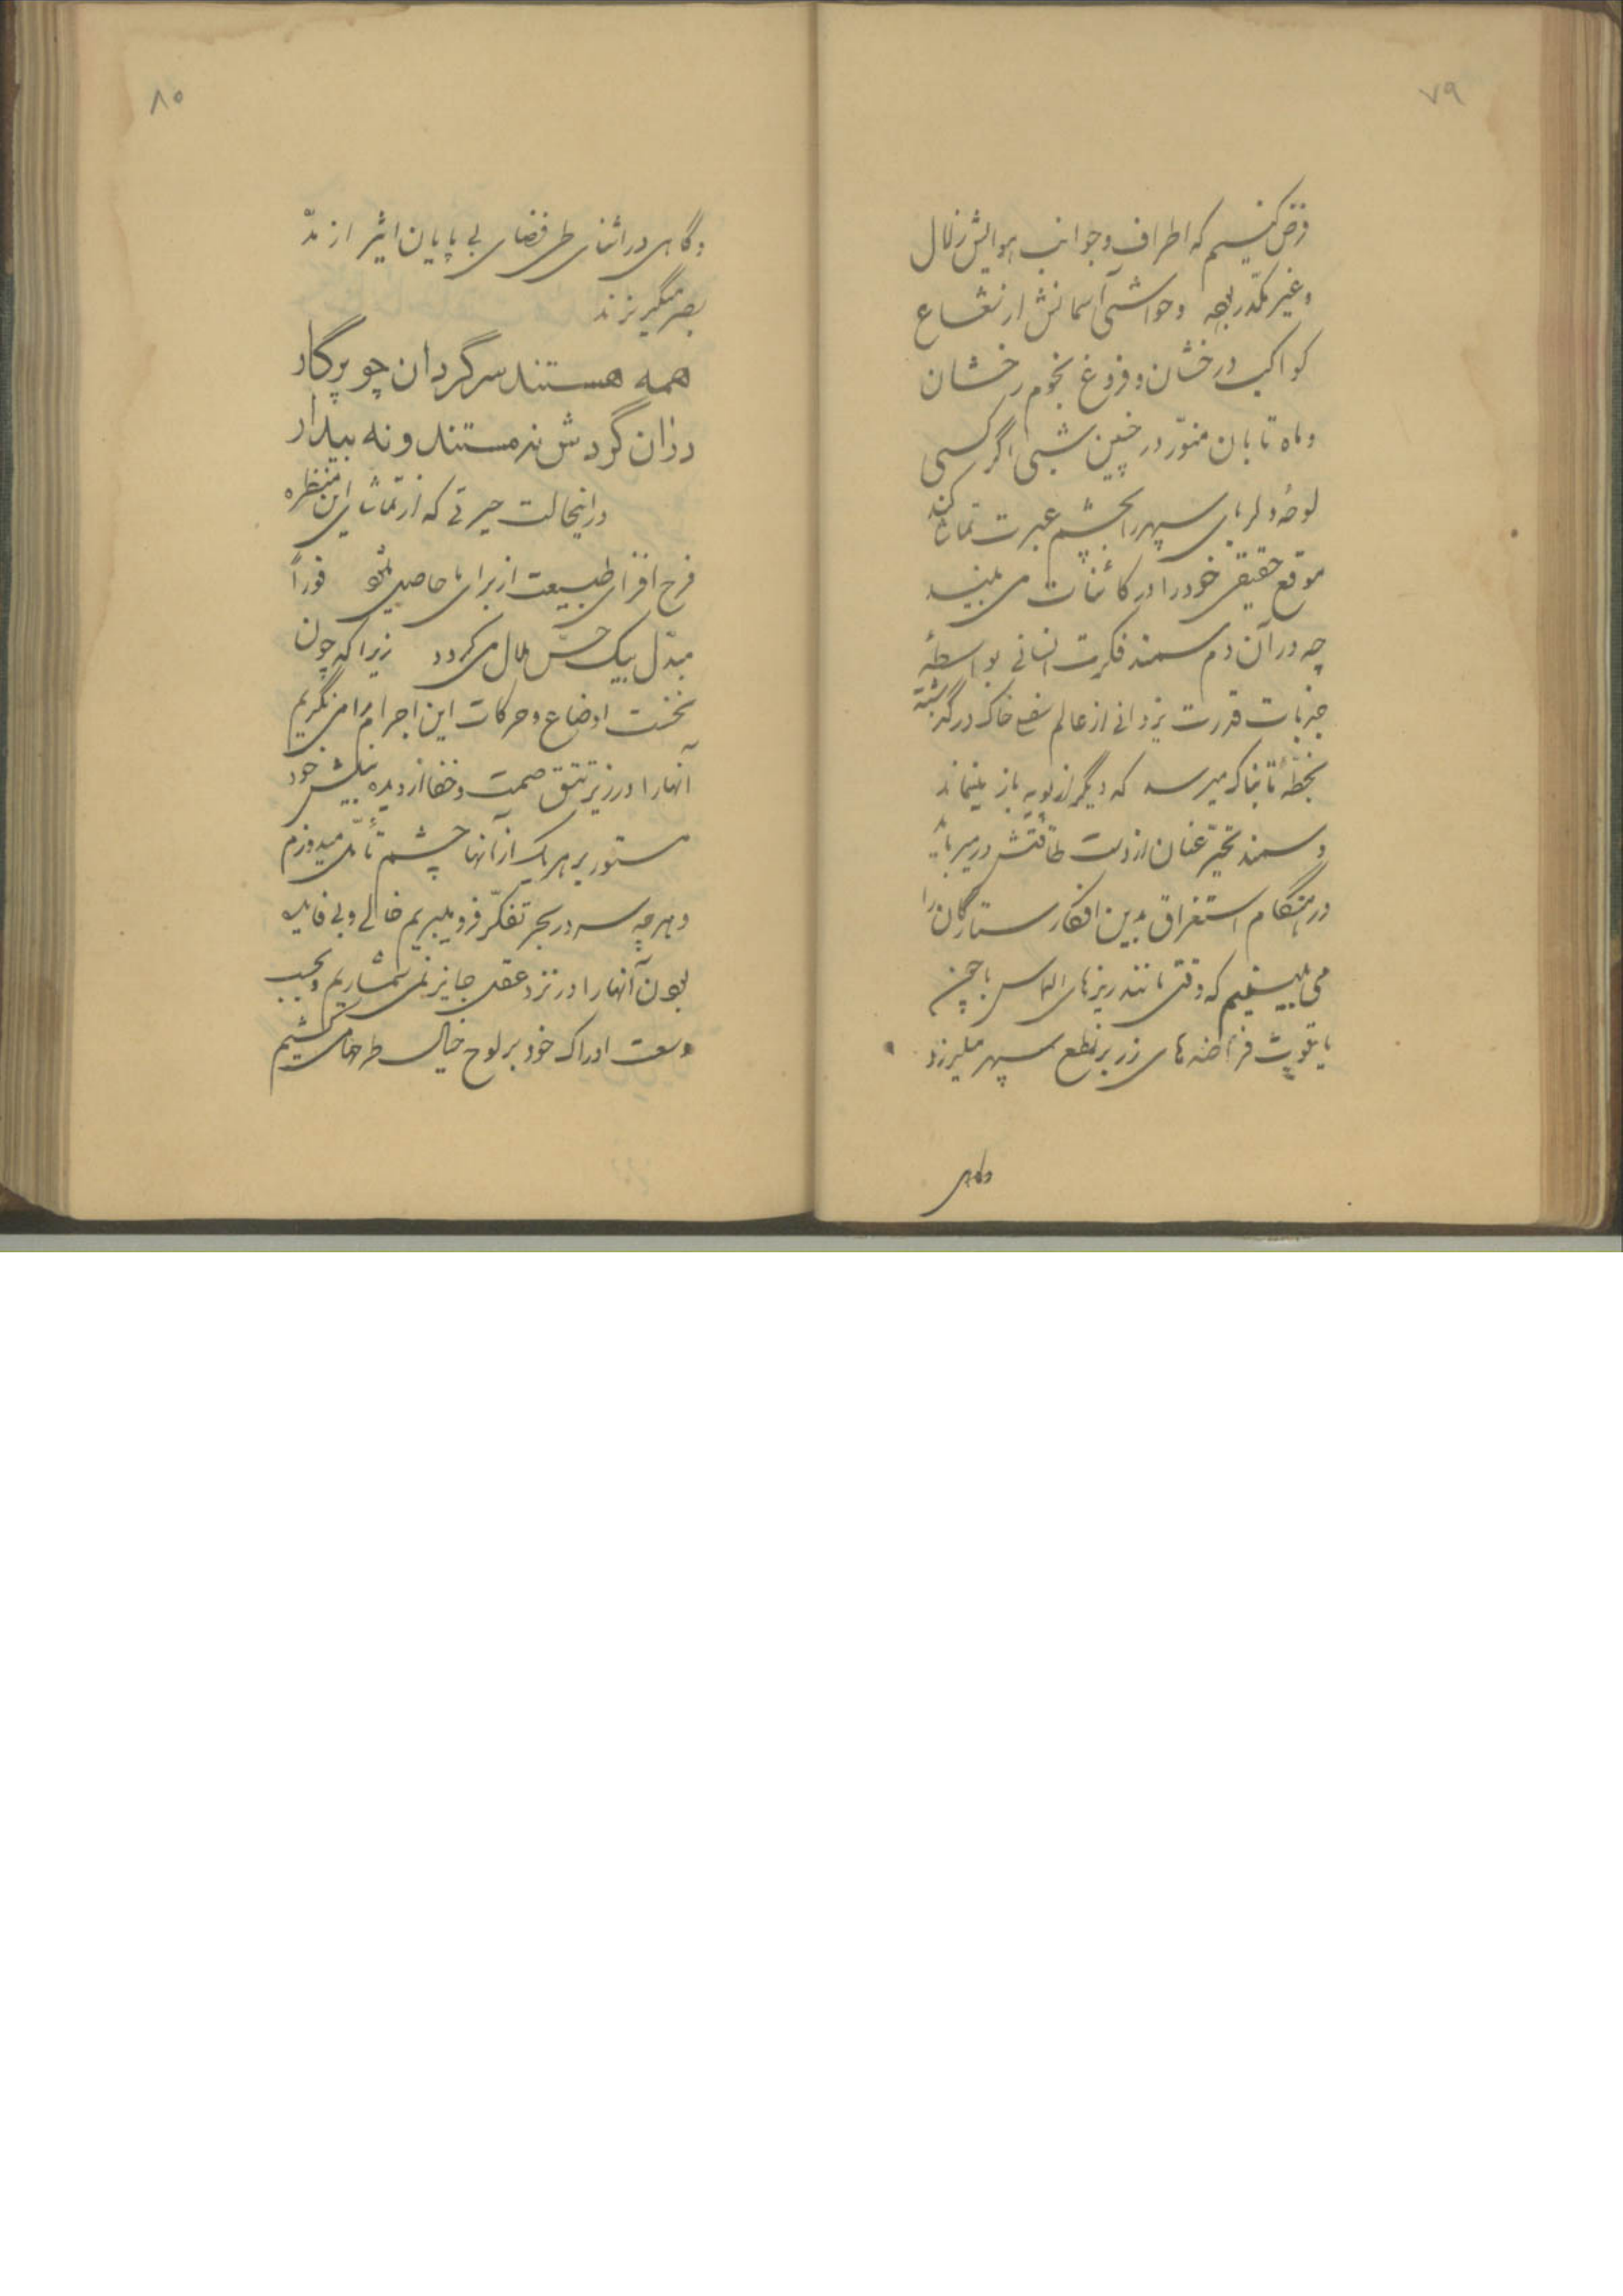 ۷۹
فرض کنیم که اطراف و جوانب هوایش زلال
و غیر مکدّر بوده و حواشی آسمانش از شعاع
کواکب درخشان و فروغ نجوم رخشان
و ماه تابان منوّر در چنین شبی اگر کسی
لوحهٔ دلربای سپهر را بچشم عبرت تماشا کند
موقع حقیقی خود را در کائنات می بیند
چه در آن دم سمند فکرت انسانی بواسطهٔ
جذبات قدرت یزدانی از عالم خاک درگذشته
بخطّهٔ تابناک میرسد که دیگر از پویه باز میماند
و سمند تحیّر عنان از دست طاقتش در میرباید
در هنگام استغراق بدین افکار ستارگان را
می بینیم که وقتی مانند ریزهای الماس با چین
یا قراضه های زر بر نطع سپهر میلرزد
وگاهی
۸۰
وگاهی در اثنای طی فضای بی پایان اثیر از مدّ
بصر میگریزند
همه هستند سرگردان چو پرگار
در آن گردش نه مستند و نه بیدار
در اینحالت حیرتی که از تماشای این منظره
فرح افزای طبیعت از برای ما حاصل فوراً
مبدّل بیک حسّ ملال می گردد زیرا که چون
نخست اوضاع و حرکات این اجرام را می نگریم
آنها را در زیر تتق صمت و خفا از دیده بینش خود
مستور بر هر یک از آنها چشم تأمّل میدوزم
و هر چه سر در بحر تفکّر فرو میبریم خالی و بی فایده
بودن آنها را در نزد عقل جایز نمی شماریم و بحسب
وسعت ادراک خود بر لوح خیال طرحها می کشیم